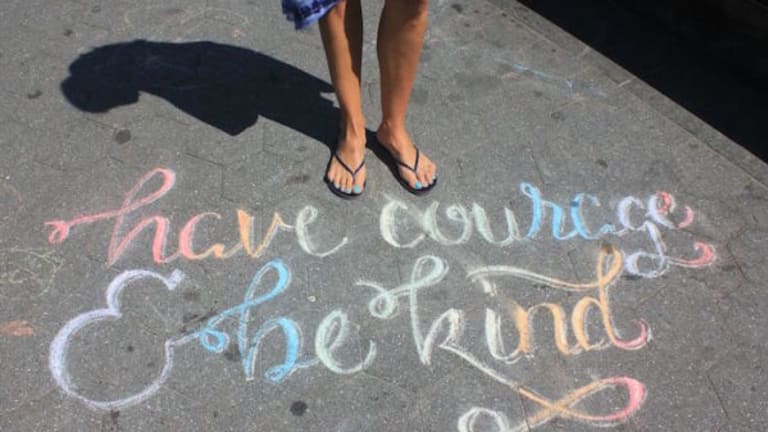 have courage
& be kind